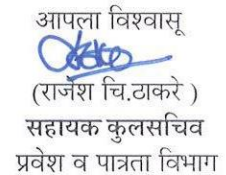 आपला विश्वासू
(राजेश चि.ठाकरे )
सहायक कुलसचिव
प्रवेश व पात्रता विभाग